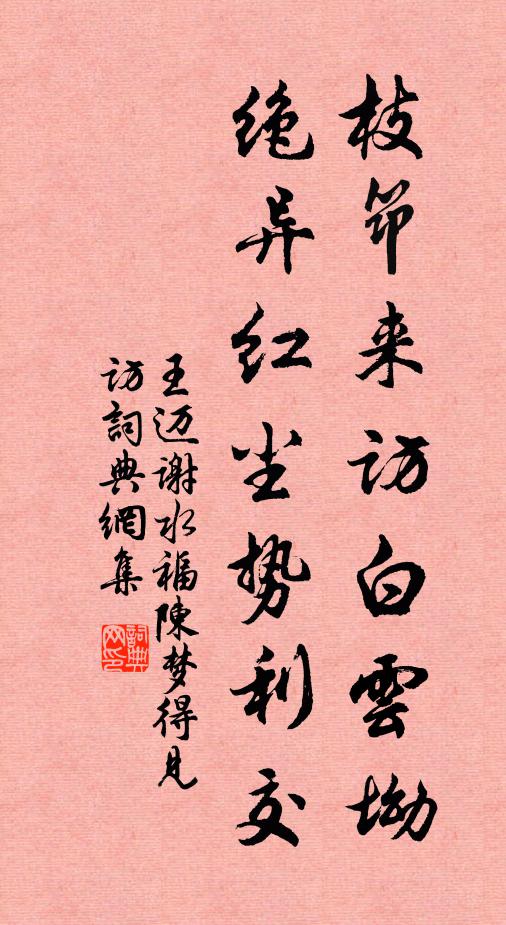 枝笻来访白雲坳
绝异红尘势利交
王迈谢水福陳梦得见
访詞典網集
詞典网印